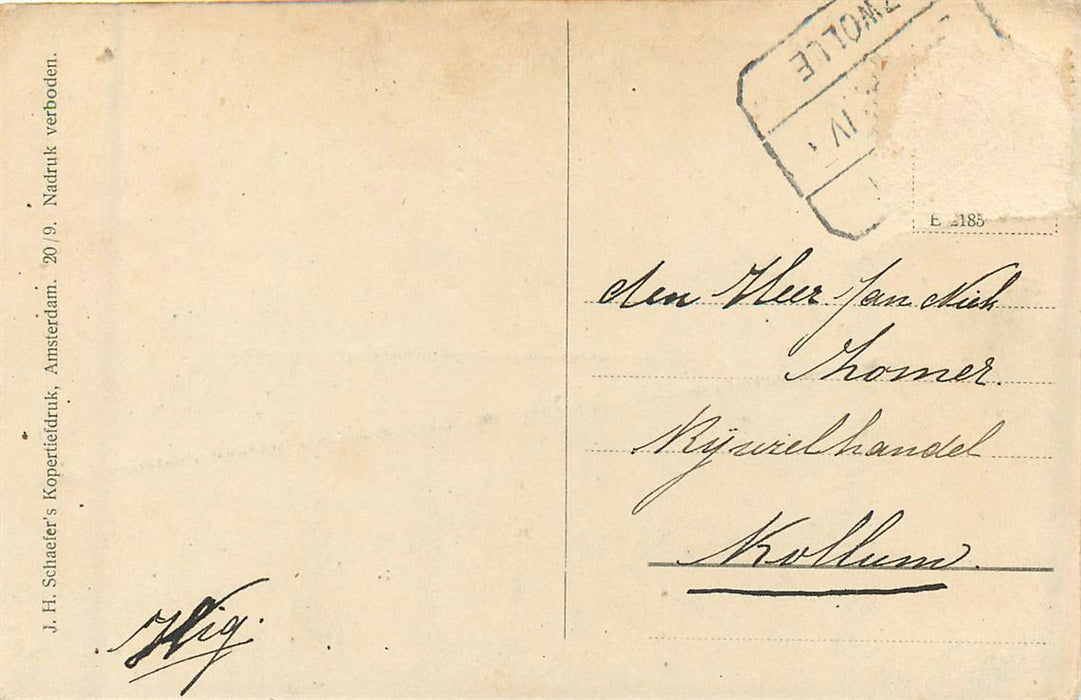 J. H. Schaefer's Kopertiefdruk, Amsterdam. 20/9. Nadruk verboden.
ZWOLLE
IV
E 2185
den Heer Jan Niek
Thomer.
Rijwielhandel
Kollum.